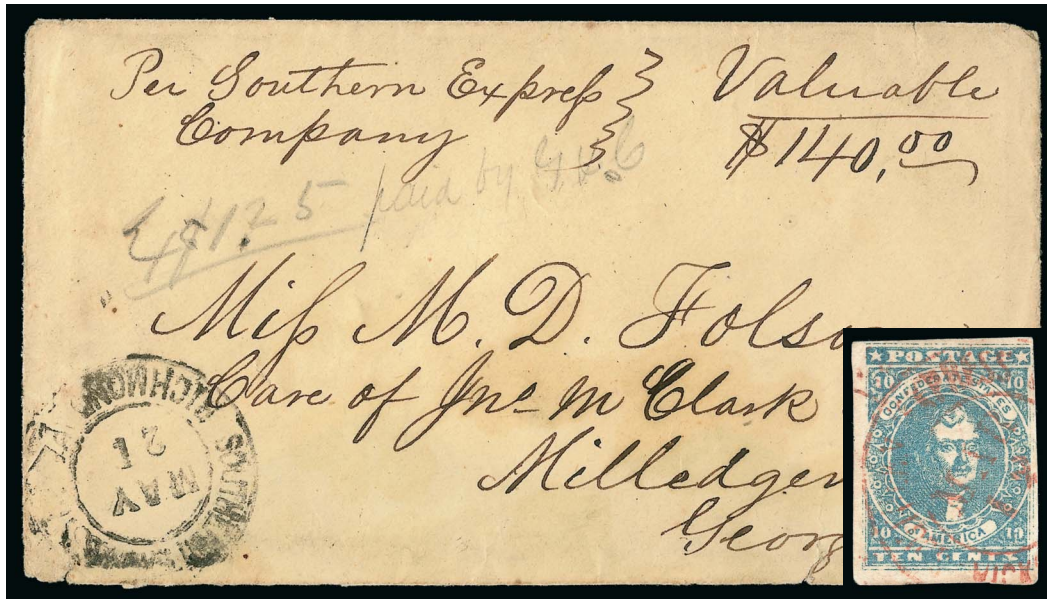 Per Southern Express
Company
Valuable
$140,00
$1.25 paid by
Miss M. D. Folso
Care of Jno M Clark
Milledgev
Georg
RICHMOND
MAY
21
POSTAGE
10 10
CONFEDERATE STATES
OF AMERICA
10 10
TEN CENTS